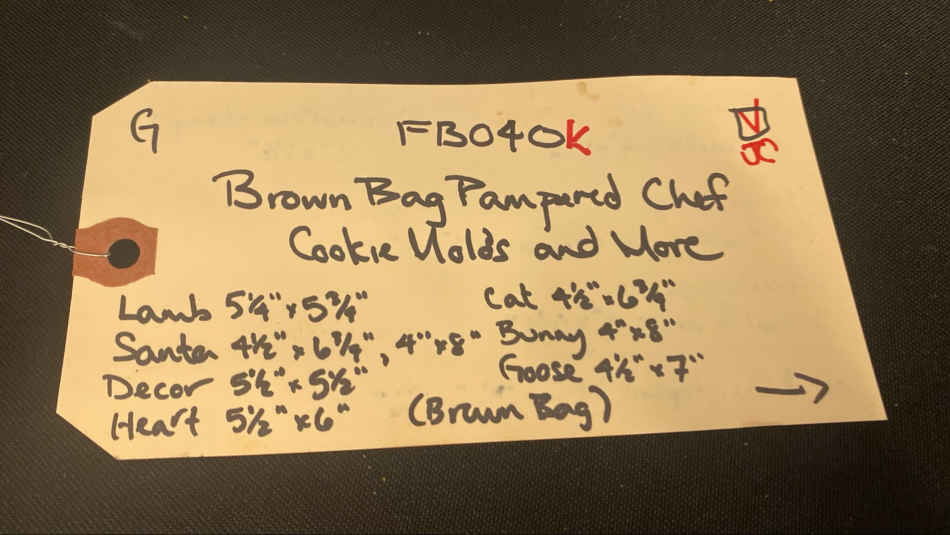 G FB040K V JC
Brown Bag Pampered Chef
Cookie Molds and More
Lamb 5¼" x 5¾" Cat 4½" x 6¾"
Santa 4½" x 6¾", 4" x 8" Bunny 4" x 8"
Decor 5½" x 5½" Goose 4½" x 7"
Heart 5½" x 6" (Brown Bag) →